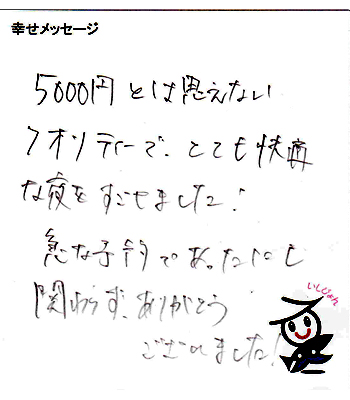 幸せメッセージ
5000円とは思えない
クオリティーで、とても快適
な夜をすごせました!
急な予約であったにも
関わらず、ありがとう
ございました!
いしじょん